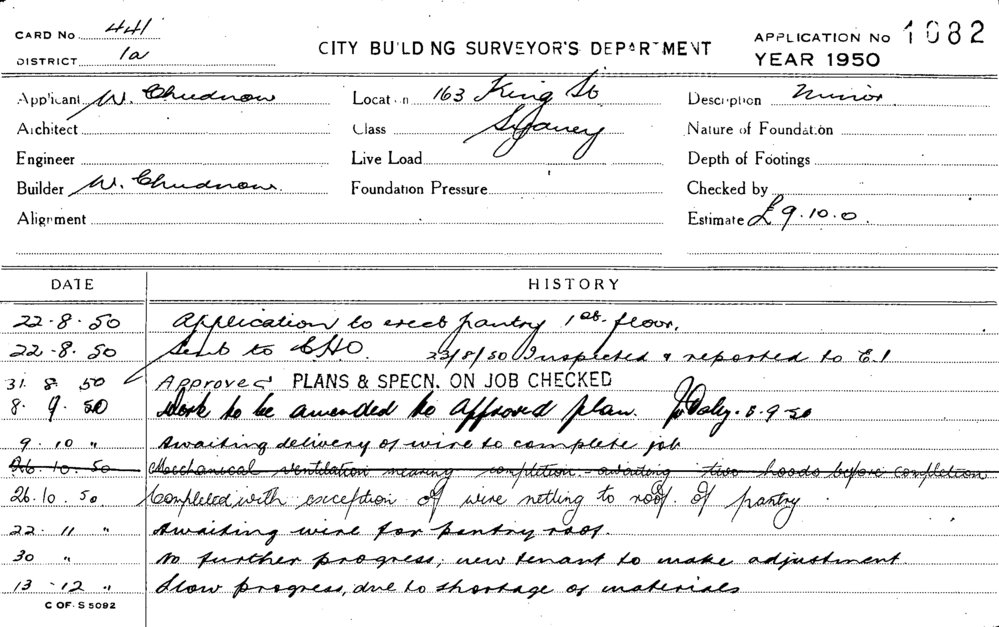 CARD No 441
DISTRICT 1a
CITY BUILDING SURVEYOR'S DEPARTMENT
APPLICATION No 1082
YEAR 1950
Applicant W. Chudnow Location 163 King St Description Minor
Architect Class Sydney Nature of Foundation
Engineer Live Load Depth of Footings
Builder W. Chudnow. Foundation Pressure Checked by
Alignment Estimate £9.10.0.
DATE HISTORY
22.8.50 Application to erect pantry 1st floor.
22.8.50 Sent to CHO. 23/8/50 Inspected & reported to E.I
31.8.50 Approved PLANS & SPECN. ON JOB CHECKED
8.9.50 Work to be amended to approved plan. Daly. 8.9.50
9.10 " Awaiting delivery of wire to complete job
26.10.50 Mechanical ventilation nearing completion - awaiting two hoods before completion
26.10.50 Completed with exception of wire netting to roof of pantry.
22.11 " Awaiting wire for pantry roof.
30 " No further progress; new tenant to make adjustment
13.12 " Slow progress, due to shortage of materials
C OF. S 5092